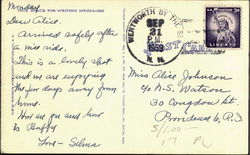 Monday
SPACE FOR WRITING MESSAGES
Dear Alice,
Arrived safely after
a nice ride.
This is a lovely spot
and we are enjoying
the few days away from
home.
How are you and how
is Buffy
Love - Selma
WENTWORTH BY THE
SEP
21
P.M.
1959
N. H.
3¢
LIBERTY
POST CARD
Miss Alice Johnson
c/o N.S. Watson
30 Congdon St
Providence 6, R.I
5/1.00
17 PL